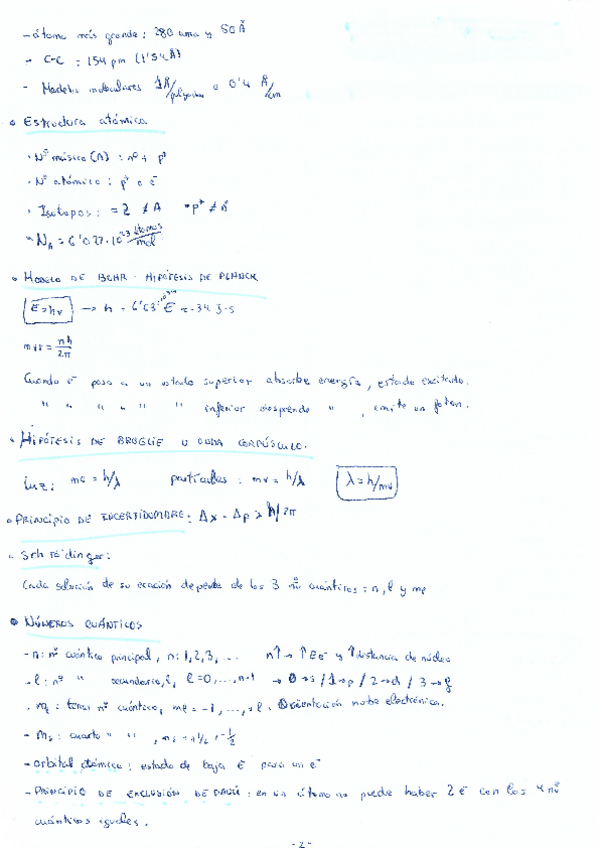 - átomo más grande: 280 uma y 5'0 Å
- C-C : 154 pm (1'54 Å)
- Modelos moleculares 1Å/pulgada o 0'4 Å/cm
• Estructura atómica
· Nº másico (A) : nº + p⁺
· Nº atómico : p⁺ o e⁻
· Isotopos : = Z ≠ A
· N_A = 6'022·10²³ átomos/mol
• MODELO DE BOHR · HIPÓTESIS DE PLANCK
E = hν → h = 6'63 E -34 J·s
mvr = nh/2π
Cuando e⁻ pasa a un estado superior absorbe energía, estado excitado.
" " " " " inferior desprende " , emite un foton.
• HIPÓTESIS DE BROGLIE U ONDA CORPÚSCULO.
Luz: mc = h/λ partículas : mv = h/λ λ = h/mv
• PRINCIPIO DE INCERTIDUMBRE: Δx · Δp ≥ h/2π
· Schrödinger:
Cada solución de su ecación depende de los 3 nº cuánticos : n, l y ml
• NÚMEROS CUÁNTICOS
- n: nº cuántico principal, n: 1, 2, 3, ... n↑ → ↑E e⁻ y ↑distancia de núcleo
- l: nº " secundario, l=0,...,n-1 → 0→s / 1→p / 2→d / 3→f
- ml : tercer nº cuántico, ml = -l, ..., +l. Orientación nube electrónica.
- ms : cuarto " " , ms = +1/2, -1/2
- orbital atómico : estado de baja E para un e⁻
- PRINCIPIO DE EXCLUSIÓN DE PAULI : en un átomo no puede haber 2 e⁻ con los 4 nº
cuánticos iguales.
-2-